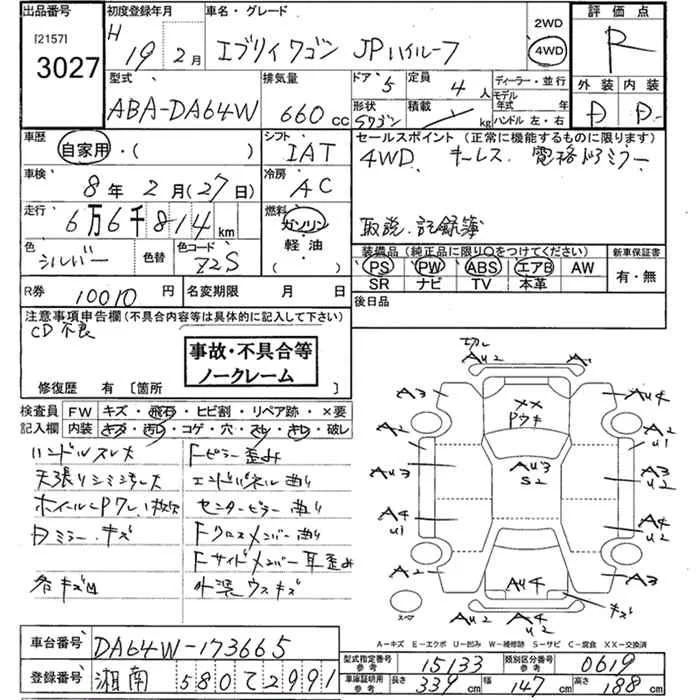 出品番号 初度登録年月 車名・グレード 2WD 評価点
[2157] H 19年 2月 エブリイワゴン JPハイルーフ 4WD R
3027 型式 排気量 ドア 5 定員 4人 ディーラー・並行 外装 内装
ABA-DA64W 660cc 形状 5ワゴン 積載 kg モデル年式 年 D D
ハンドル 左・右
車歴 シフト セールスポイント(正常に機能するものに限ります)
自家用・( ) IAT 4WD キーレス 電格ドアミラー
車検 8年 2月(27日) 冷房 AC
走行 6万6千814km 燃料 ガソリン 軽油 ( ) 取説 記録簿
色 シルバー 色替 色コード Z2S 装備品(純正品に限り○をつけてください) 新車保証書
PS PW ABS エアB AW 有・無
SR ナビ TV 本革
R券 10010円 名変期限 月 日 後日品
注意事項申告欄(不具合内容等は具体的に記入して下さい)
CD不良
事故・不具合等
ノークレーム
修復歴 有〔箇所 〕
検査員 FW キズ・飛石・ヒビ割・リペア跡・×要
記入欄 内装 キズ・汚レ・コゲ・穴・スレ・キレ・破レ
ハンドルスレ大 Fピラー歪み
天張りシミ汚レ大 エンドパネル曲り
センターピラー曲り
Dミラーキズ Fクロスメンバー曲り
Fサイドメンバー耳歪み
各キズ凹 外装ウスキズ
AU2 A1
A3 AU4
XX
Pウキ
A2 A2 U1
AU3 AU3 S2 A3 U2
A4 U1 A4 U2
A2 AU4 A3
キズ
スペア AU2 A4 U2
A-キズ E-エクボ U-凹み W-補修跡 S-サビ C-腐食 XX-交換済
車台番号 DA64W-173665
型式指定番号 参考 15133 類別区分番号 参考 0619
登録番号 湘南 580て2991
車庫証明用 参考 長さ 339cm 幅 147cm 高さ 188cm